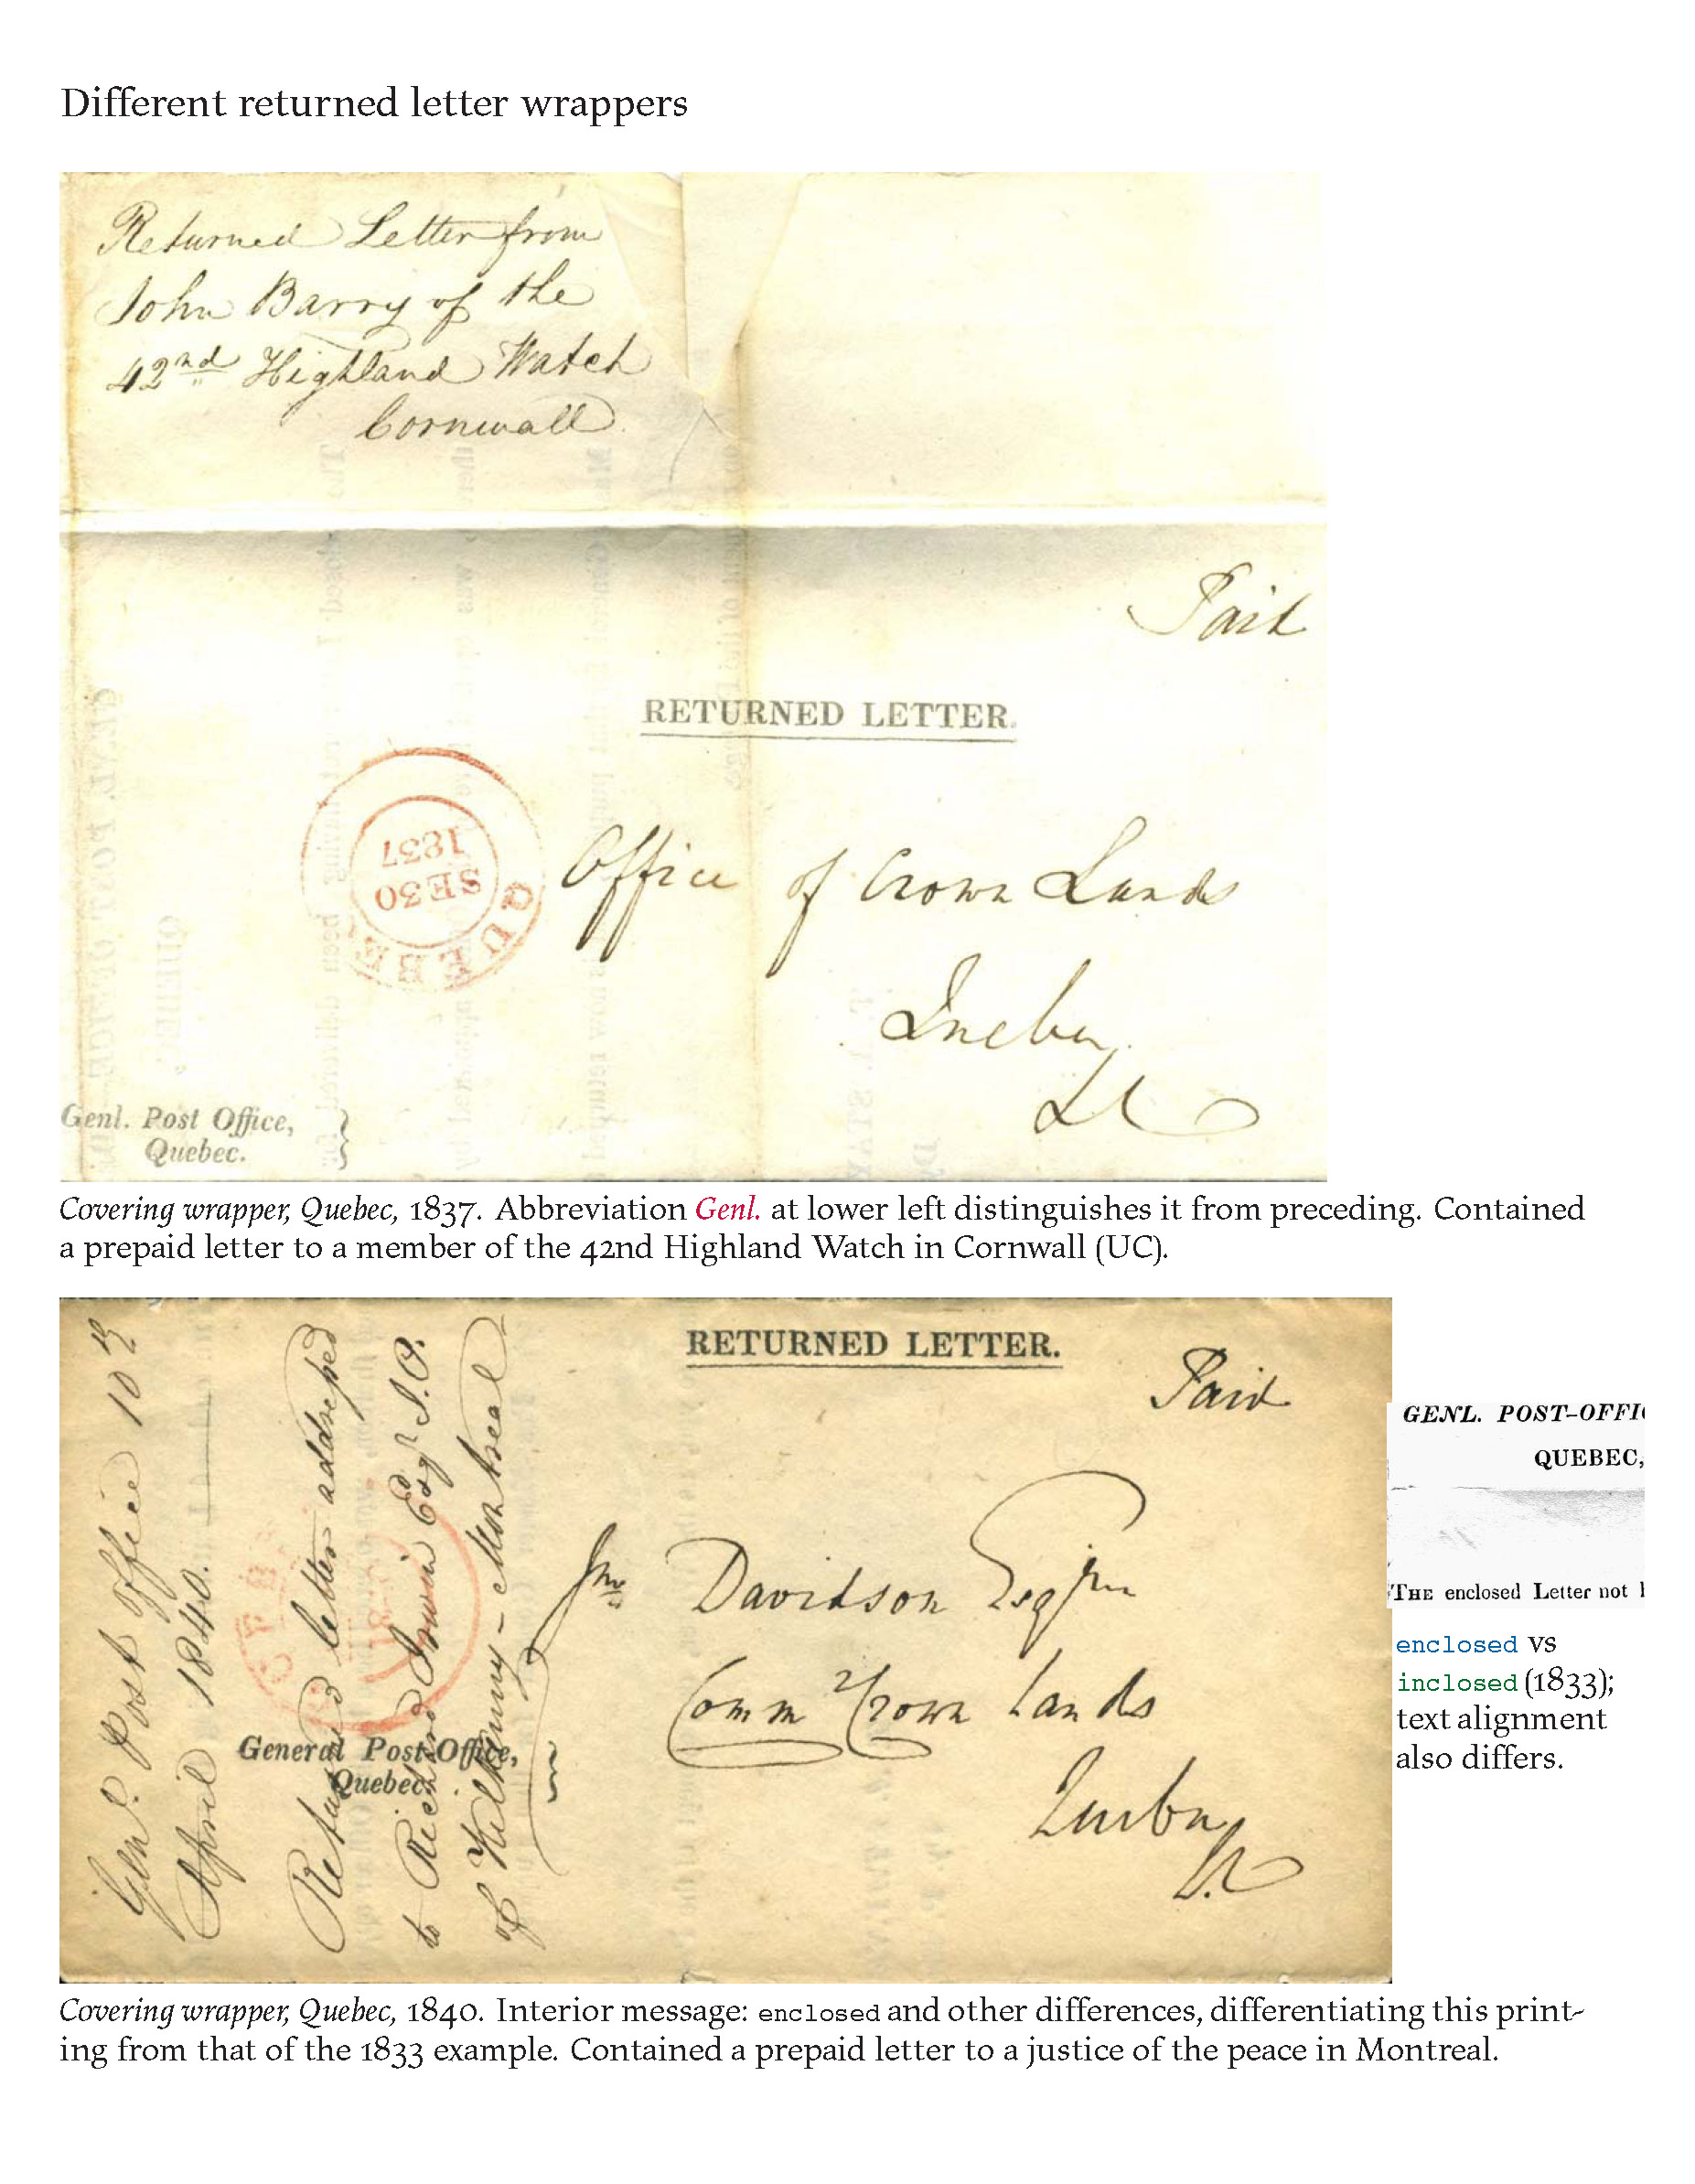 Different returned letter wrappers
Returned Letter from
John Barry of the
42nd Highland Watch
Cornwall
Paid
RETURNED LETTER.
QUEBEC
SE 30
1837
Office of Crown Lands
Quebec
Genl. Post Office,
Quebec.
Covering wrapper, Quebec, 1837. Abbreviation Genl. at lower left distinguishes it from preceding. Contained
a prepaid letter to a member of the 42nd Highland Watch in Cornwall (UC).
RETURNED LETTER.
Paid
Genl. Post Office 10th
April 1840.
Returned letter addressed
to Richard Irwin Esqr J.P.
of Kilkenny – Montreal
General Post-Office,
Quebec.
Jno Davidson Esqr
Comm Crown Lands
Quebec
GENL. POST-OFFI
QUEBEC,
THE enclosed Letter not
enclosed vs
inclosed (1833);
text alignment
also differs.
Covering wrapper, Quebec, 1840. Interior message: enclosed and other differences, differentiating this print-
ing from that of the 1833 example. Contained a prepaid letter to a justice of the peace in Montreal.